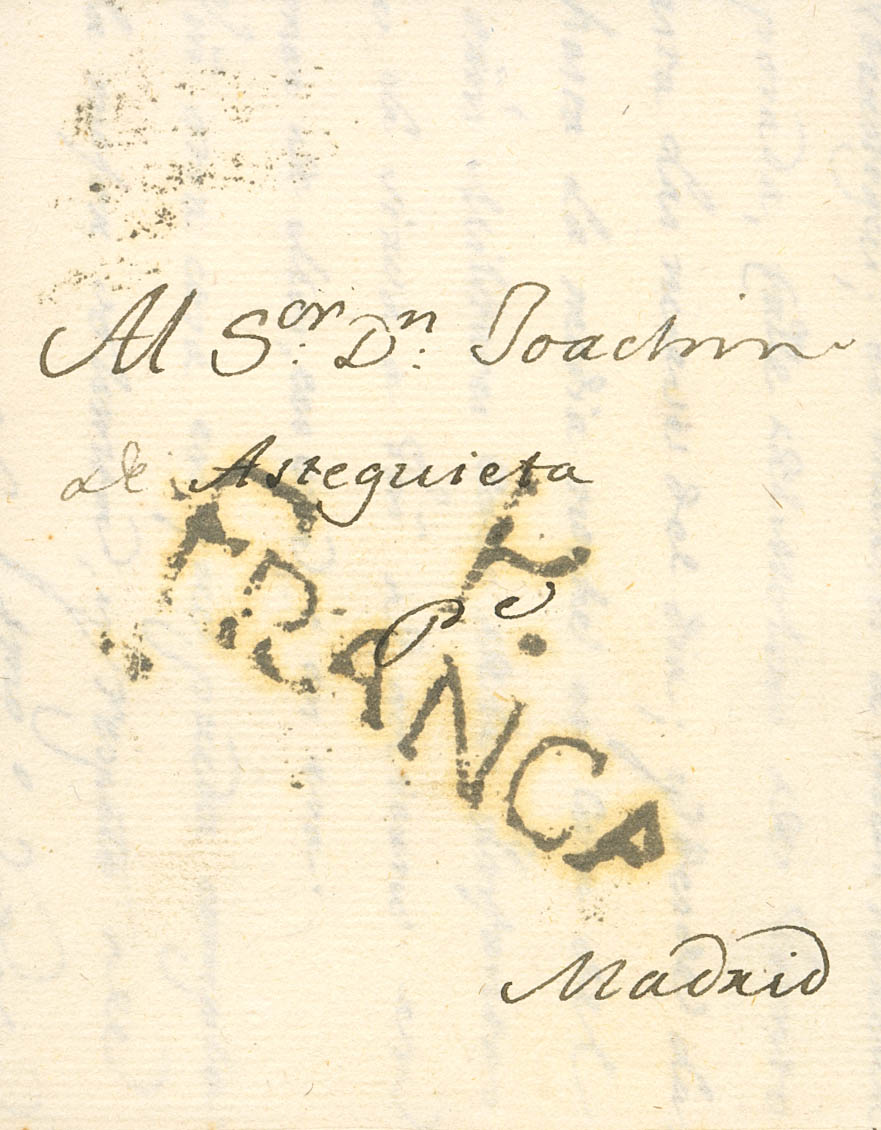 Al S.or D.n Joachin
de Asteguieta
Y.
FRANCA
Pe
Madrid